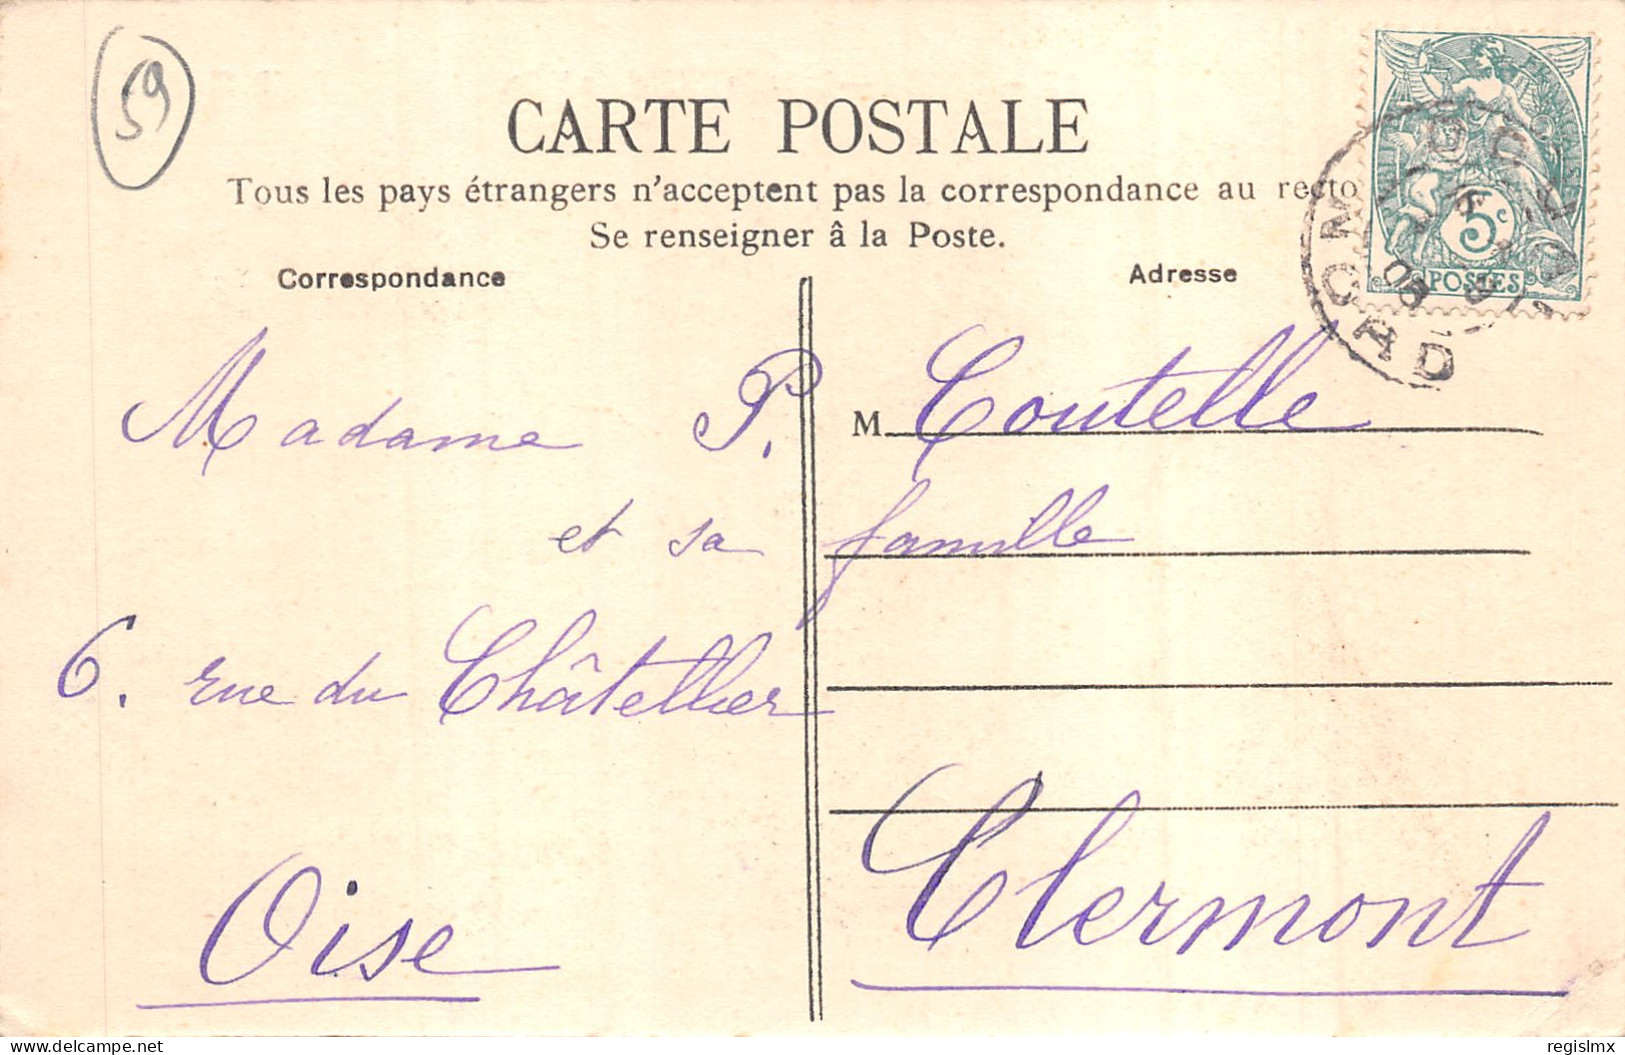 59
CARTE POSTALE
Tous les pays étrangers n'acceptent pas la correspondance au recto
Se renseigner à la Poste.
Correspondance
Adresse
5c
POSTES
Madame P. M Coutelle
et sa famille
6. rue du Châtellier
Clermont
Oise
www.delcampe.net
regislmx